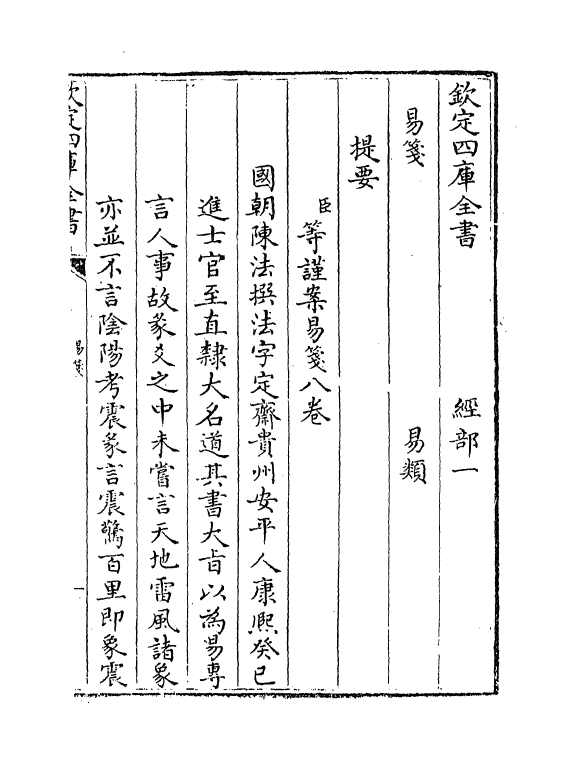 欽定四庫全書　經部一
易箋　易類
提要
臣等謹案易箋八卷
國朝陳法撰法字定齋貴州安平人康熙癸巳
進士官至直隸大名道其書大旨以為易專
言人事故彖爻之中未嘗言天地雷風諸象
亦並不言陰陽考震彖言震驚百里即象震
欽定四庫全書
易箋
一